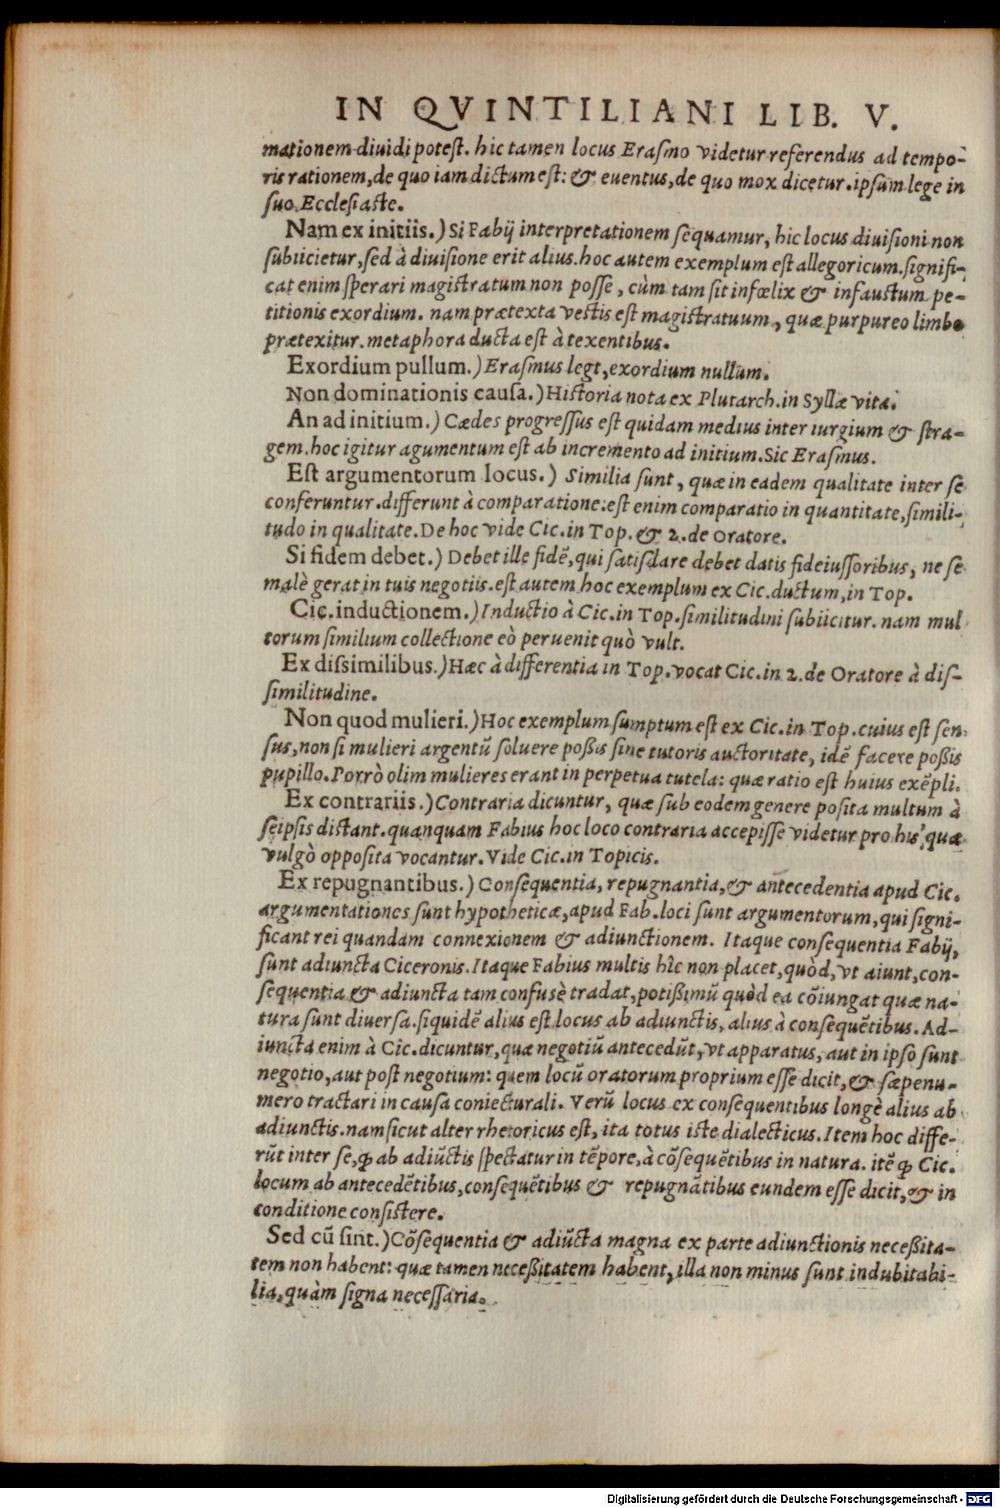 IN QVINTILIANI LIB. V.
mationem diuidi potest. hic tamen locus Erasmo videtur referendus ad tempo-
ris rationem, de quo iam dictum est: & euentus, de quo mox dicetur. ipsum lege in
suo Ecclesiaste.
Nam ex initiis.) Si Fabij interpretationem sequamur, hic locus diuisioni non
subiicietur, sed à diuisione erit alius. hoc autem exemplum est allegoricum. signifi-
cat enim sperari magistratum non posse, cùm tam sit infœlix & infaustum pe-
titionis exordium. nam prætexta vestis est magistratuum, quæ purpureo limbo
prætexitur. metaphora ducta est à texentibus.
Exordium pullum.) Erasmus legt, exordium nullum.
Non dominationis causa.) Historia nota ex Plutarch. in Syllæ vita.
An ad initium.) Cædes progressus est quidam medius inter iurgium & stra-
gem. hoc igitur agumentum est ab incremento ad initium. Sic Erasmus.
Est argumentorum locus.) Similia sunt, quæ in eadem qualitate inter se
conferuntur. differunt à comparatione: est enim comparatio in quantitate, simili-
tudo in qualitate. De hoc vide Cic. in Top. & 2. de Oratore.
Si fidem debet.) Debet ille fidẽ, qui satisdare debet datis fideiussoribus, ne se
malè gerat in tuis negotiis. est autem hoc exemplum ex Cic. ductum, in Top.
Cic. inductionem.) Inductio à Cic. in Top. similitudini subiicitur. nam mul
torum similium collectione eò peruenit quò vult.
Ex dissimilibus.) Hæc à differentia in Top. vocat Cic. in 2. de Oratore à dis-
similitudine.
Non quod mulieri.) Hoc exemplum sumptum est ex Cic. in Top. cuius est sen-
sus, non si mulieri argentũ soluere possis sine tutoris auctoritate, idẽ facere possis
pupillo. Porrò olim mulieres erant in perpetua tutela: quæ ratio est huius exẽpli.
Ex contrariis.) Contraria dicuntur, quæ sub eodem genere posita multum à
seipsis distant. quanquam Fabius hoc loco contraria accepisse videtur pro his, quæ
vulgò opposita vocantur. Vide Cic. in Topicis.
Ex repugnantibus.) Consequentia, repugnantia, & antecedentia apud Cic.
argumentationes sunt hypotheticæ, apud Fab. loci sunt argumentorum, qui signi-
ficant rei quandam connexionem & adiunctionem. Itaque consequentia Fabij,
sunt adiuncta Ciceronis. Itaque Fabius multis hîc non placet, quòd, vt aiunt, con-
sequentia & adiuncta tam confusè tradat, potissimũ quòd ea cõiungat quæ na-
tura sunt diuersa. siquidẽ alius est locus ab adiunctis, alius à consequẽtibus. Ad-
iuncta enim à Cic. dicuntur, quæ negotiũ antecedũt, vt apparatus, aut in ipso sunt
negotio, aut post negotium: quem locũ oratorum proprium esse dicit, & sæpenu-
mero tractari in causa coniecturali. Verũ locus ex consequentibus longè alius ab
adiunctis. nam sicut alter rhetoricus est, ita totus iste dialecticus. Item hoc diffe-
rũt inter se, ꝙ ab adiũctis spectatur in tẽpore, à cõsequẽtibus in natura. itẽ ꝙ Cic.
locum ab antecedẽtibus, consequẽtibus & repugnãtibus eundem esse dicit, & in
conditione consistere.
Sed cũ sint.) Cõsequentia & adiũcta magna ex parte adiunctionis necessita-
tem non habent: quæ tamen necessitatem habent, illa non minus sunt indubitabi-
lia, quàm signa necessaria.
Digitalisierung gefördert durch die Deutsche Forschungsgemeinschaft - DFG